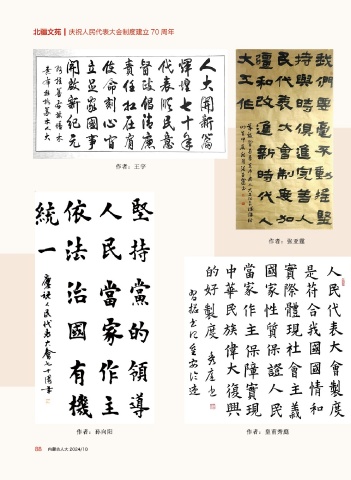 北疆文苑 | 庆祝人民代表大会制度建立 70 周年
人大開新篇
輝煌七十年
代表順民意
督政倡清廉
責任扛在肩
使命刻心間
立足家國事
開啟新紀元
作者:王宇
我們要毫不動搖堅
持與時俱進完善人
民代表大會制度加
彊和改進新時代人
大工作
作者:张亚霆
堅持黨的領導
人民當家作主
依法治國有機
統一
慶祝人民代表大會七十周年
作者:孙向阳
人民代表大會制度
是符合我國國情和
實際體現社會主義
國家性質保證人民
當家作主保障實現
中華民族偉大復興
的好製度
作者:皇甫秀庭
88 内蒙古人大 2024/10